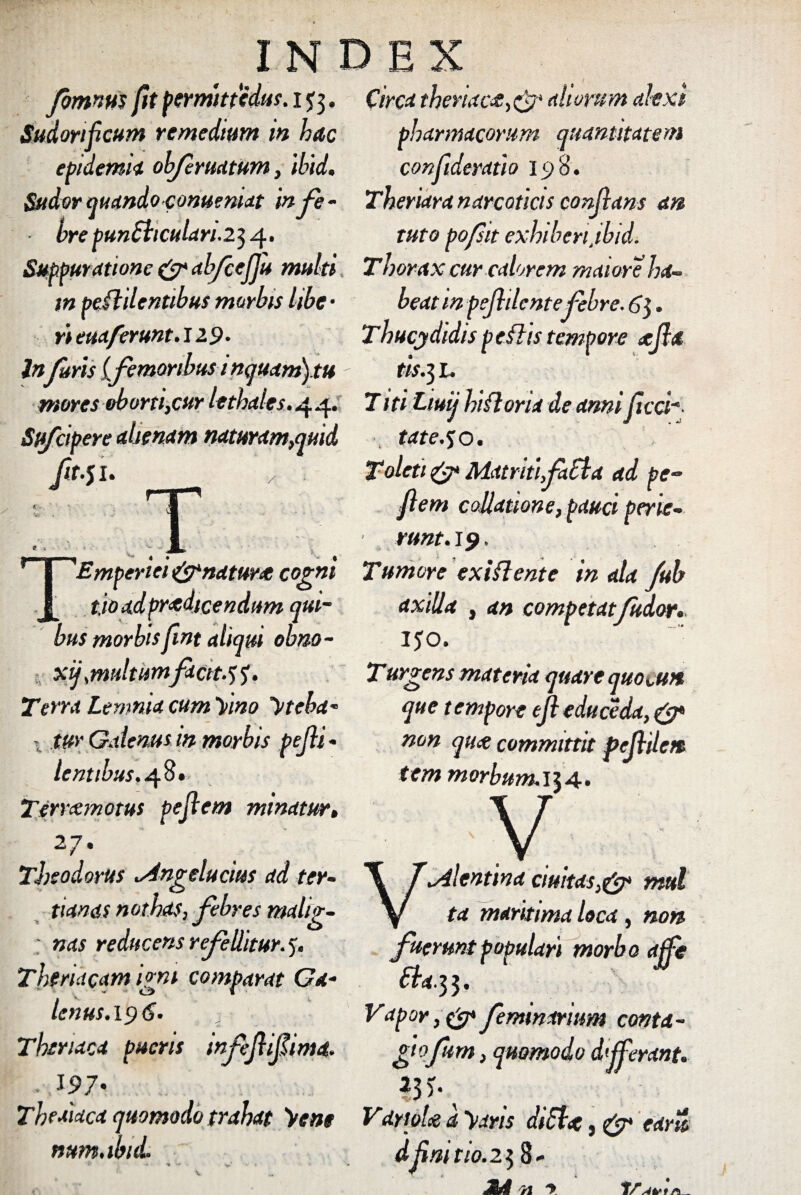 INDEX
ſomnus ſit permittēdus. 153.
Sudorificum remedium in hac
epidemia obſeruatum, ibid.
Sudor quando conueniat in fe-
bre puncticulari. 234.
Suppuratione & abſceſſu multi
in peſtilentibus morbis libe-
ri euaſerunt. 129.
In furis (femoribus inquam) tu
mores oborti, cur lethales. 44.
Suſcipere alienam naturam, quid
ſit. 51.
T
TEmperiei & naturæ cogni
tio ad prædicendum qui-
bus morbis ſint aliqui obno-
xij, multum facit. 55.
Terra Lemnia cum vino vteba-
tur Galenus in morbis peſti-
lentibus. 48.
Terræmotus peſtem minatur.
27.
Theodorus Angelucius ad ter-
tianas nothas, febres malig-
nas reducens refellitur. 5.
Theriacam igni comparat Ga-
lenus. 196.
Theriaca pueris infeſtiſſima.
197.
Theriaca quomodo trahat vene
num. ibid.
Circa theriacæ, & aliorum alexi
pharmacorum quantitatem
conſideratio 198.
Theriara narcoticis conſtans an
tuto poſsit exhiberi, ibid.
Thorax cur calorem maiorē ha-
beat in peſtilente febre. 63.
Thucydidis peſtis tempore æſta
tis. 31.
Titi Liuij hiſtoria de anni ſicci-
tate. 50.
Toleti & Matriti, facta ad pe-
ſtem collatione, pauci perie-
runt. 19.
Tumore exiſtente in ala ſub
axilla, an competat ſudor.
150.
Turgens materia quare quocun
que tempore eſt educēda, &
non quæ committit peſtilen
tem morbum. 134.
V
VAlentina ciuitas, & mul
ta maritima loca, non
fuerunt populari morbo affe
cta. 33.
Vapor, & ſeminarium conta-
gioſum, quomodo differant.
235.
Variolæ à varis dictæ, & earū
dfinitio. 238-
M n 2 Vario-